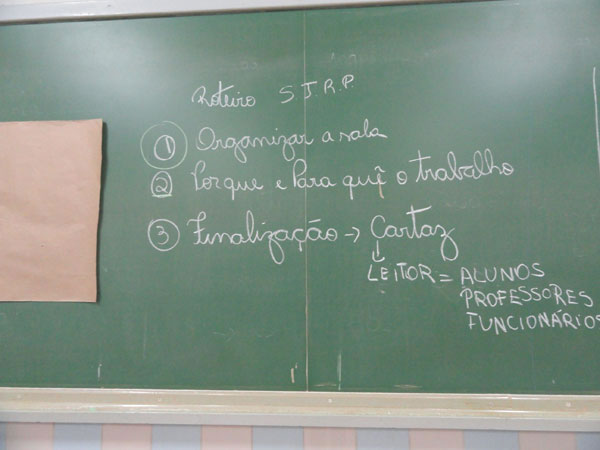 Roteiro S.J.R.P.
① Organizar a sala
2 Porque e Para quê o trabalho
③ Finalização → Cartaz
↓
LEITOR = ALUNOS
PROFESSORES
FUNCIONÁRIOS